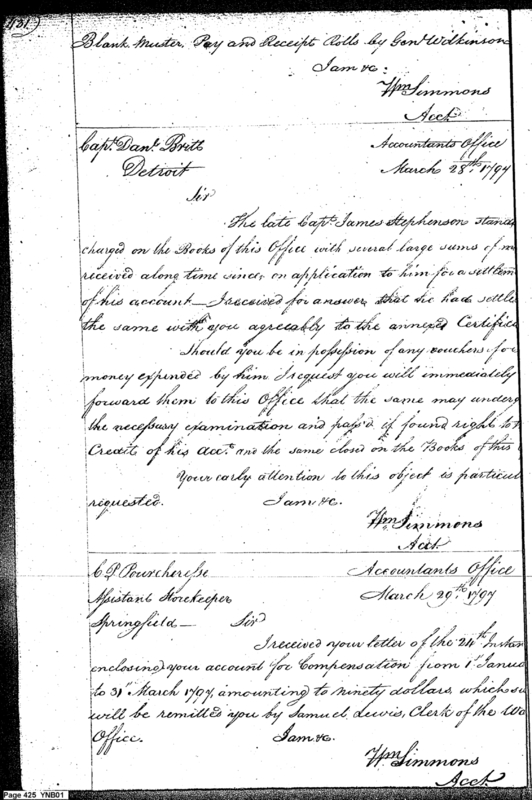 431
Blank Muster, Pay and Receipt Rolls by Genl. Wilkinson
I am &c:
Wm Simmons
Acct.
Capt. Danl. Britt
Accountants Office
Detroit
March 28th. 1797
Sir
The late Capt. James Stephenson stands
charged on the Books of this Office with several large sums of
received a long time since, on application to him for a settlem
of his account — I received for answer that he had settle
the same with you agreeably to the annexed Certifica
Should you be in possession of any vouchers for
money expended by him I request you will immediately
forward them to this Office that the same may underg
the necessary examination and pass'd if found right to
Credit of his Acct. and the same closed on the Books of this
Your early attention to this object is particul
requested.
I am &c.
Wm Simmons
Acct.
Accountants Office
Assistant Storekeeper
March 29th. 1797
Springfield —
Sir
I received your letter of the 24th Instan
enclosing your account for Compensation from 1 Janua
to 31st March 1797, amounting to ninety dollars, which su
will be remitted you by Samuel Lewis, Clerk of the Wa
Office.
I am &c.
Wm Simmons
Acct.
Page 425 YNB01